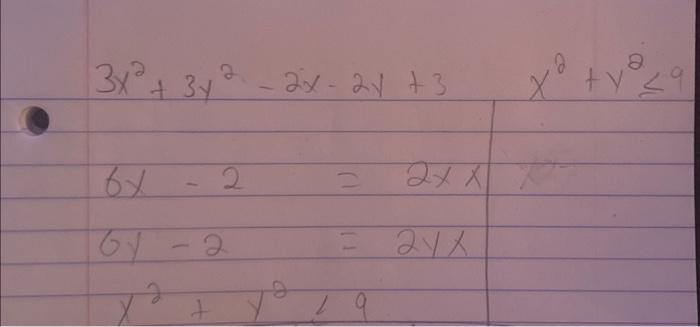 3x² + 3y² - 2x - 2y + 3 x² + y² ≤ 9
6x - 2 = 2xλ
6y - 2 = 2yλ
x² + y² ≤ 9